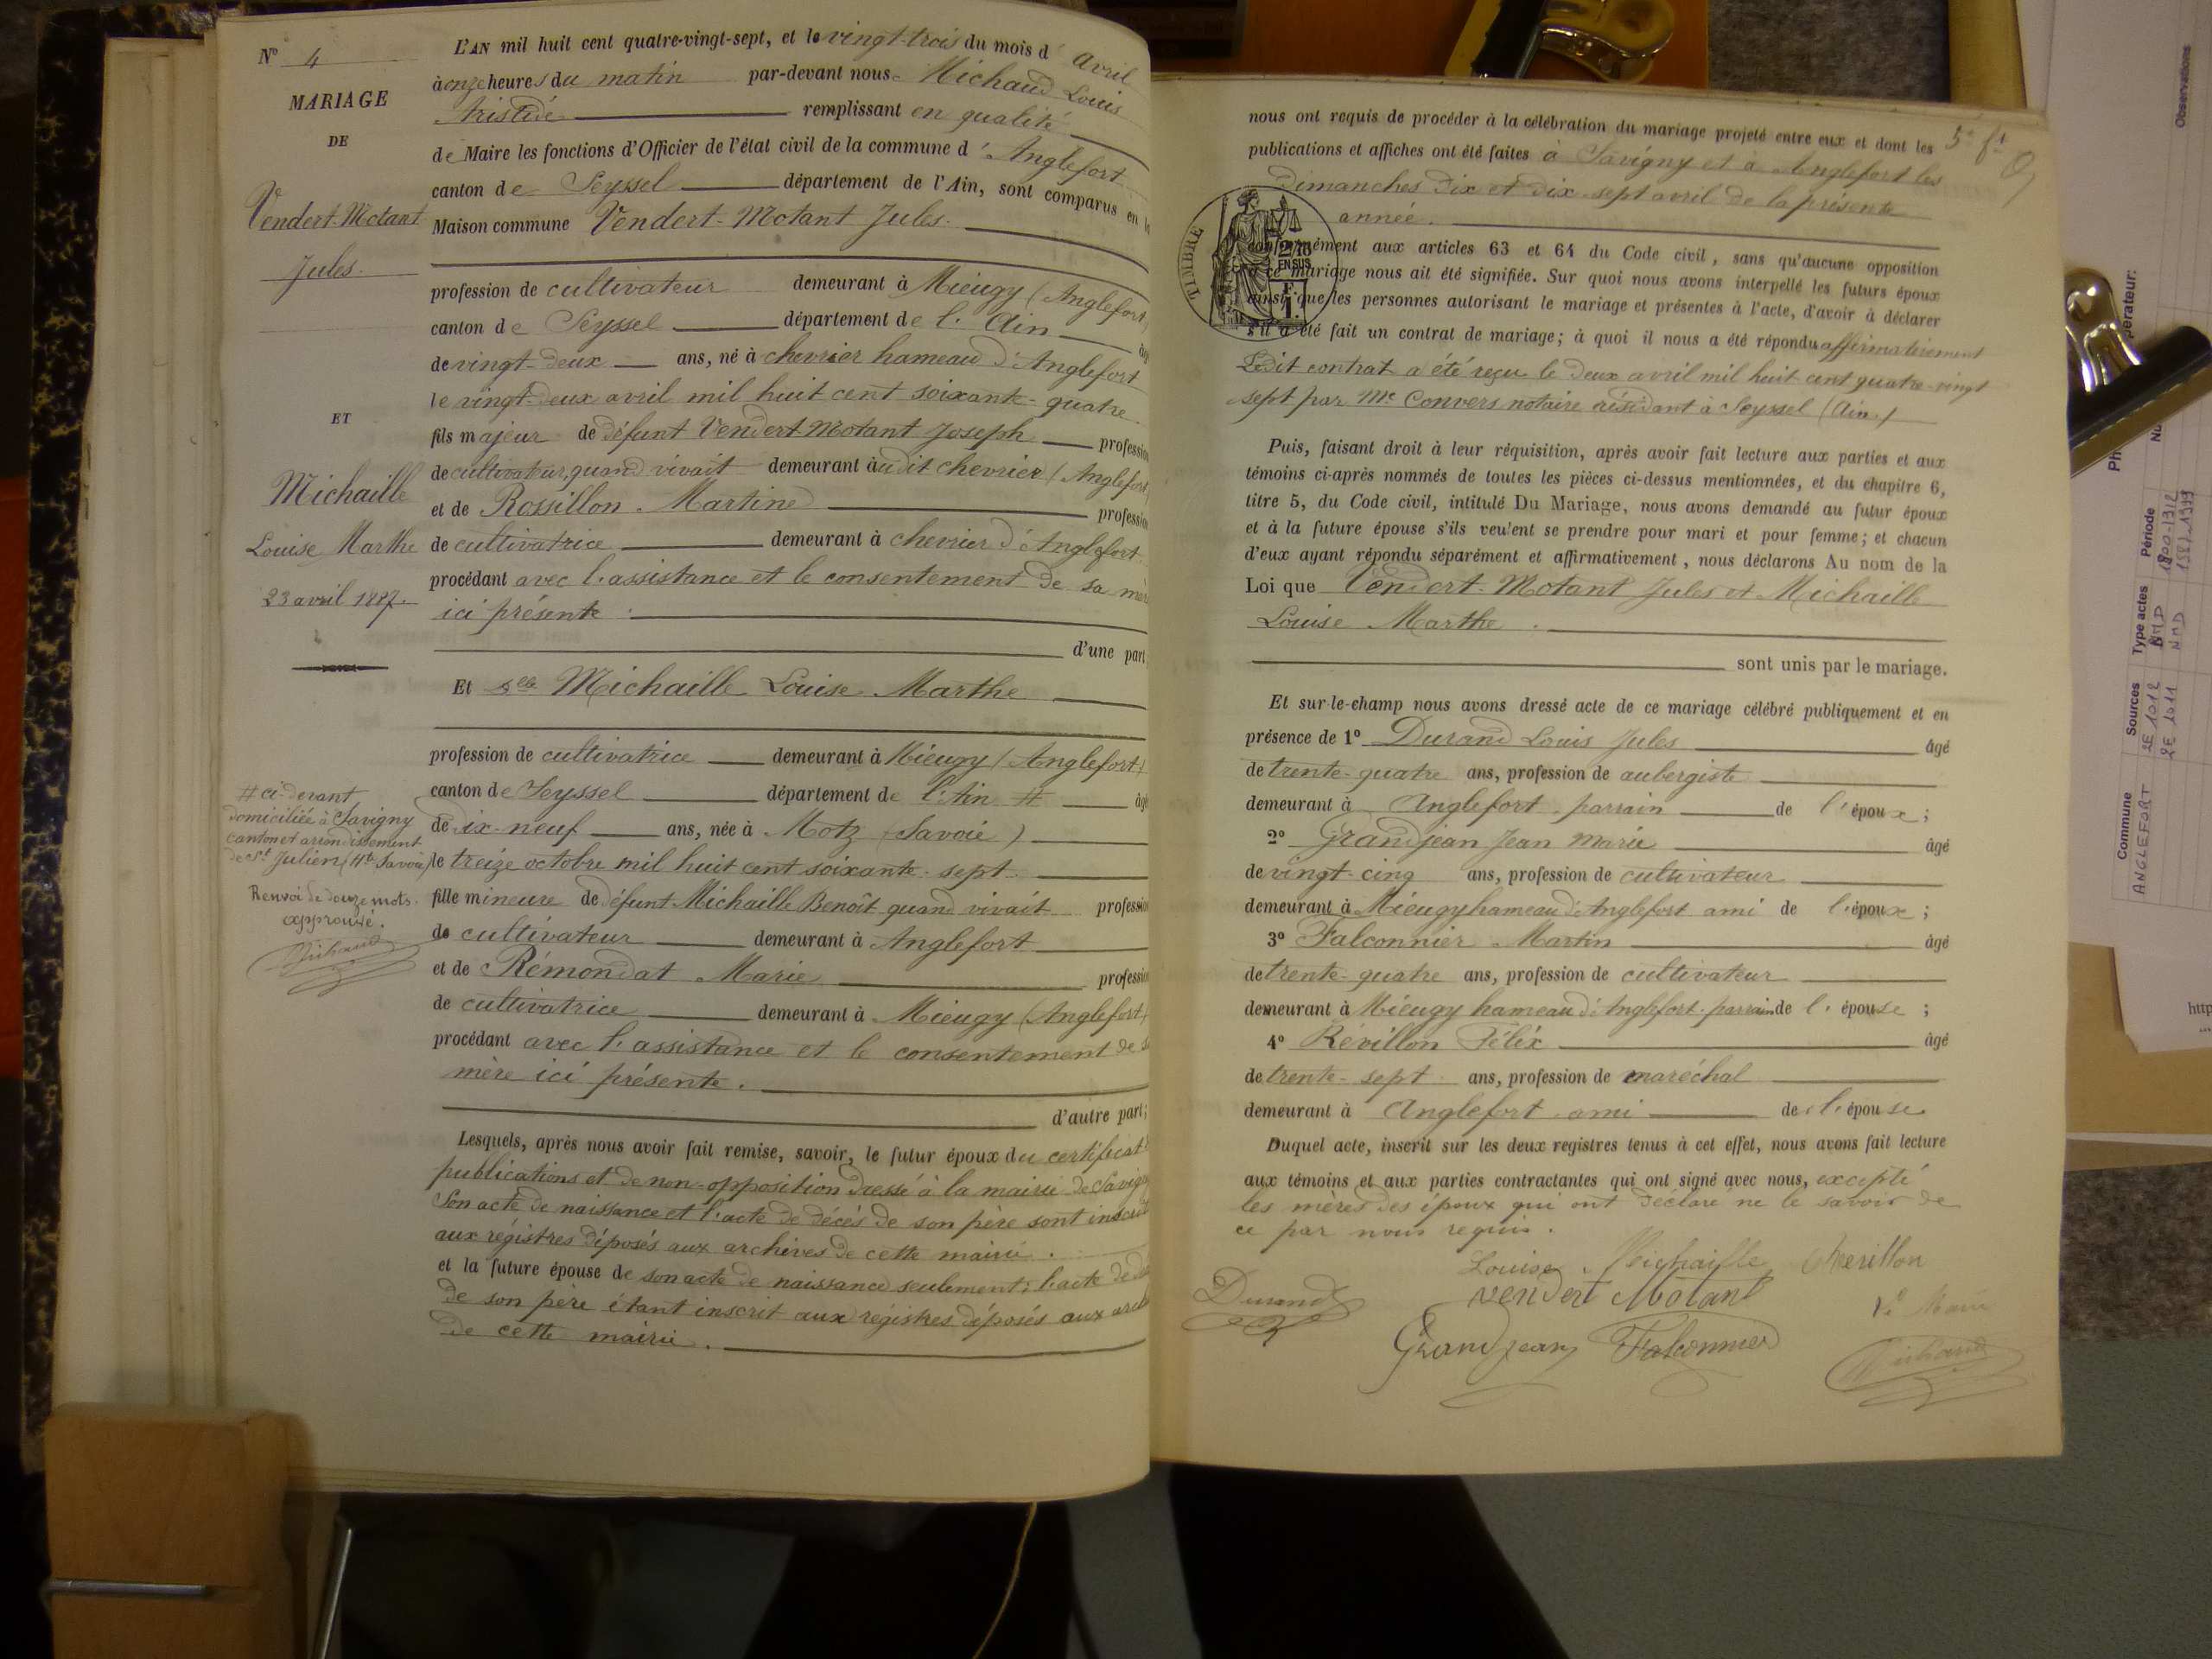 N° 4
MARIAGE
DE
Vendert-Motant
Jules.
ET
Michaille
Louise Marthe
23 avril 1887.
# ci-devant
domiciliée à Savigny
canton et arrondissement
de St Julien (Hte Savoie)
Renvoi de douze mots
approuvé.
Michaud
L'AN mil huit cent quatre-vingt-sept, et le vingt-trois du mois d'Avril
à onze heures du matin par-devant nous Michaud Louis
Aristide remplissant en qualité
de Maire les fonctions d'Officier de l'état civil de la commune d'Anglefort
canton de Seyssel département de l'Ain, sont comparus en la
Maison commune Vendert-Motant Jules.
profession de cultivateur demeurant à Mieugy (Anglefort)
canton de Seyssel département de l'Ain âg
de vingt-deux ans, né à chevrier hameau d'Anglefort
le vingt-deux avril mil huit cent soixante-quatre
fils majeur de défunt Vendert-Motant Joseph profession
de cultivateur, quand vivait demeurant àudit chevrier (Anglefort
et de Rossillon Martine profession
de cultivatrice demeurant à chevrier d'Anglefort.
procédant avec l'assistance et le consentement de sa mèr
ici présente.
d'une part
Et Delle Michaille Louise Marthe
profession de cultivatrice demeurant à Mieugy (Anglefort)
canton de Seyssel département de l'Ain # âg
de dix-neuf ans, née à Motz (Savoie)
le treize octobre mil huit cent soixante-sept.
fille mineure de défunt Michaille Benoît quand vivait profession
de cultivateur demeurant à Anglefort
et de Rémondat Marie profession
de cultivatrice demeurant à Mieugy (Anglefort)
procédant avec l'assistance et le consentement de s
mère ici présente.
d'autre part;
Lesquels, après nous avoir fait remise, savoir, le futur époux du certificat
publications et de non-opposition dressé à la mairie de Savign
Son acte de naissance et l'acte de décès de son père sont inscri
aux régistres déposés aux archives de cette mairie.
et la future épouse de son acte de naissance seulement; l'acte de d
de son père étant inscrit aux régistres déposés aux arch
de cette mairie.
nous ont requis de procéder à la célébration du mariage projeté entre eux et dont les
publications et affiches ont été faites à Savigny et à Anglefort les
dimanches dix et dix-sept avril de la présente
année.
5e ft
TIMBRE
2/10
EN SUS
1F
conformément aux articles 63 et 64 du Code civil, sans qu'aucune opposition
à ce mariage nous ait été signifiée. Sur quoi nous avons interpellé les futurs époux
ainsi que les personnes autorisant le mariage et présentes à l'acte, d'avoir à déclarer
s'il a été fait un contrat de mariage; à quoi il nous a été répondu affirmativement
Ledit contrat a été reçu le deux avril mil huit cent quatre-vingt
sept par Me Convers notaire résidant à Seyssel (Ain.)
Puis, faisant droit à leur réquisition, après avoir fait lecture aux parties et aux
témoins ci-après nommés de toutes les pièces ci-dessus mentionnées, et du chapitre 6,
titre 5, du Code civil, intitulé Du Mariage, nous avons demandé au futur époux
et à la future épouse s'ils veulent se prendre pour mari et pour femme; et chacun
d'eux ayant répondu séparément et affirmativement, nous déclarons Au nom de la
Loi que Vendert-Motant Jules et Michaille
Louise Marthe.
sont unis par le mariage.
Et sur-le-champ nous avons dressé acte de ce mariage célébré publiquement et en
présence de 1° Durand Louis Jules âgé
de trente-quatre ans, profession de aubergiste
demeurant à Anglefort parrain de l'époux;
2° Grandjean Jean Marie âgé
de vingt-cinq ans, profession de cultivateur
demeurant à Mieugy hameau d'Anglefort ami de l'époux;
3° Falconnier Martin âgé
de trente-quatre ans, profession de cultivateur
demeurant à Mieugy hameau d'Anglefort parrain de l'épouse;
4° Révillon Félix âgé
de trente-sept ans, profession de maréchal
demeurant à Anglefort ami de l'épouse
Duquel acte, inscrit sur les deux registres tenus à cet effet, nous avons fait lecture
aux témoins et aux parties contractantes qui ont signé avec nous, excepté
les mères des époux qui ont déclaré ne le savoir de
ce par nous requis.
Louise Michaille
Durand
Vendert Motant
Le Maire
Grandjean Falconnier
Michaud
Observations
Opérateur:
Commune Sources Type actes Période
ANGLEFORT 2E 1012 NMD
2E 1011 NMD
http